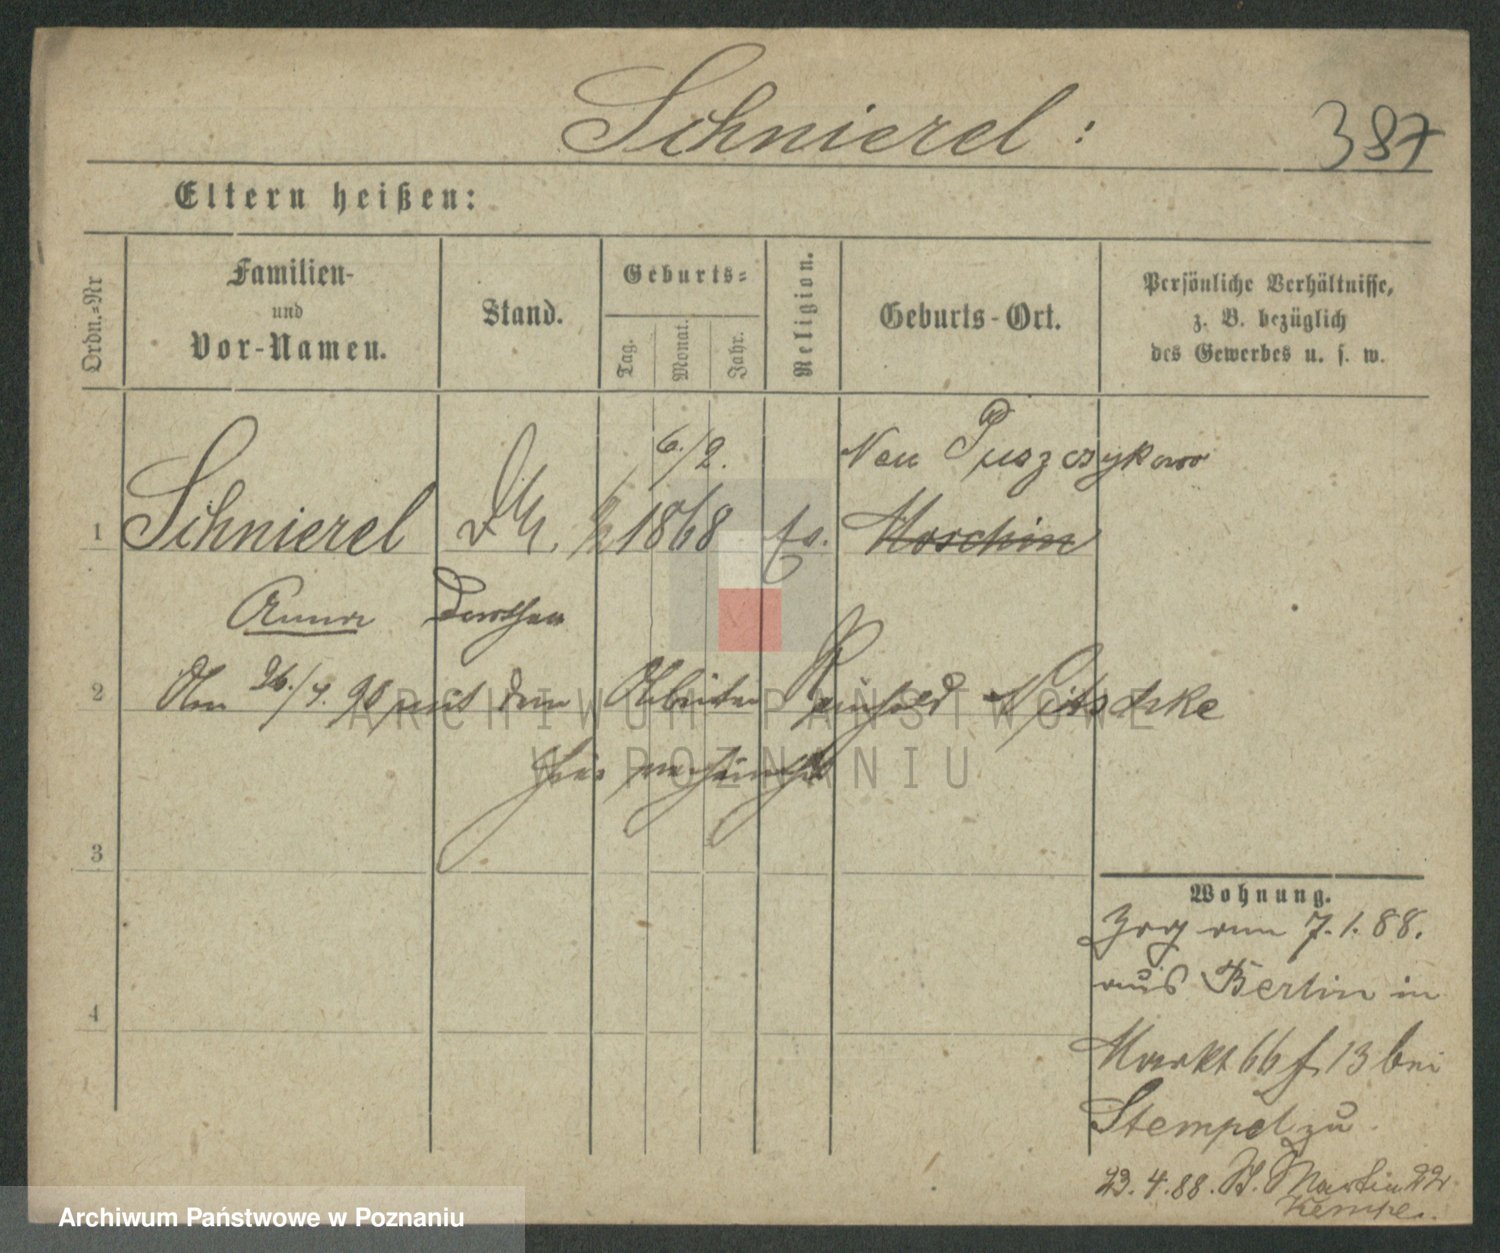 Schnierel:
387
Eltern heißen:
Ordn.=Nr
Familien-
und
Vor-Namen.
Stand.
Geburts=
Tag.
Monat.
Jahr.
Religion.
Geburts-Ort.
Persönliche Verhältnisse,
z. B. bezüglich
des Gewerbes u. s. w.
6./2. Neu Puszczykowo
1 Schnierel 1868 Moschin
Anna Dorothea
2 Am 26./4. 90 mit dem Arbeiter Reinhold Nitschke
hier verheirathet
3
4
Wohnung.
Zog am 7.1.88.
aus Berlin in
Markt 66 f 13 bei
Stempel zu
23.4.88. St. Martin 22
Kempe.
ARCHIWUM PAŃSTWOWE
W POZNANIU
Archiwum Państwowe w Poznaniu